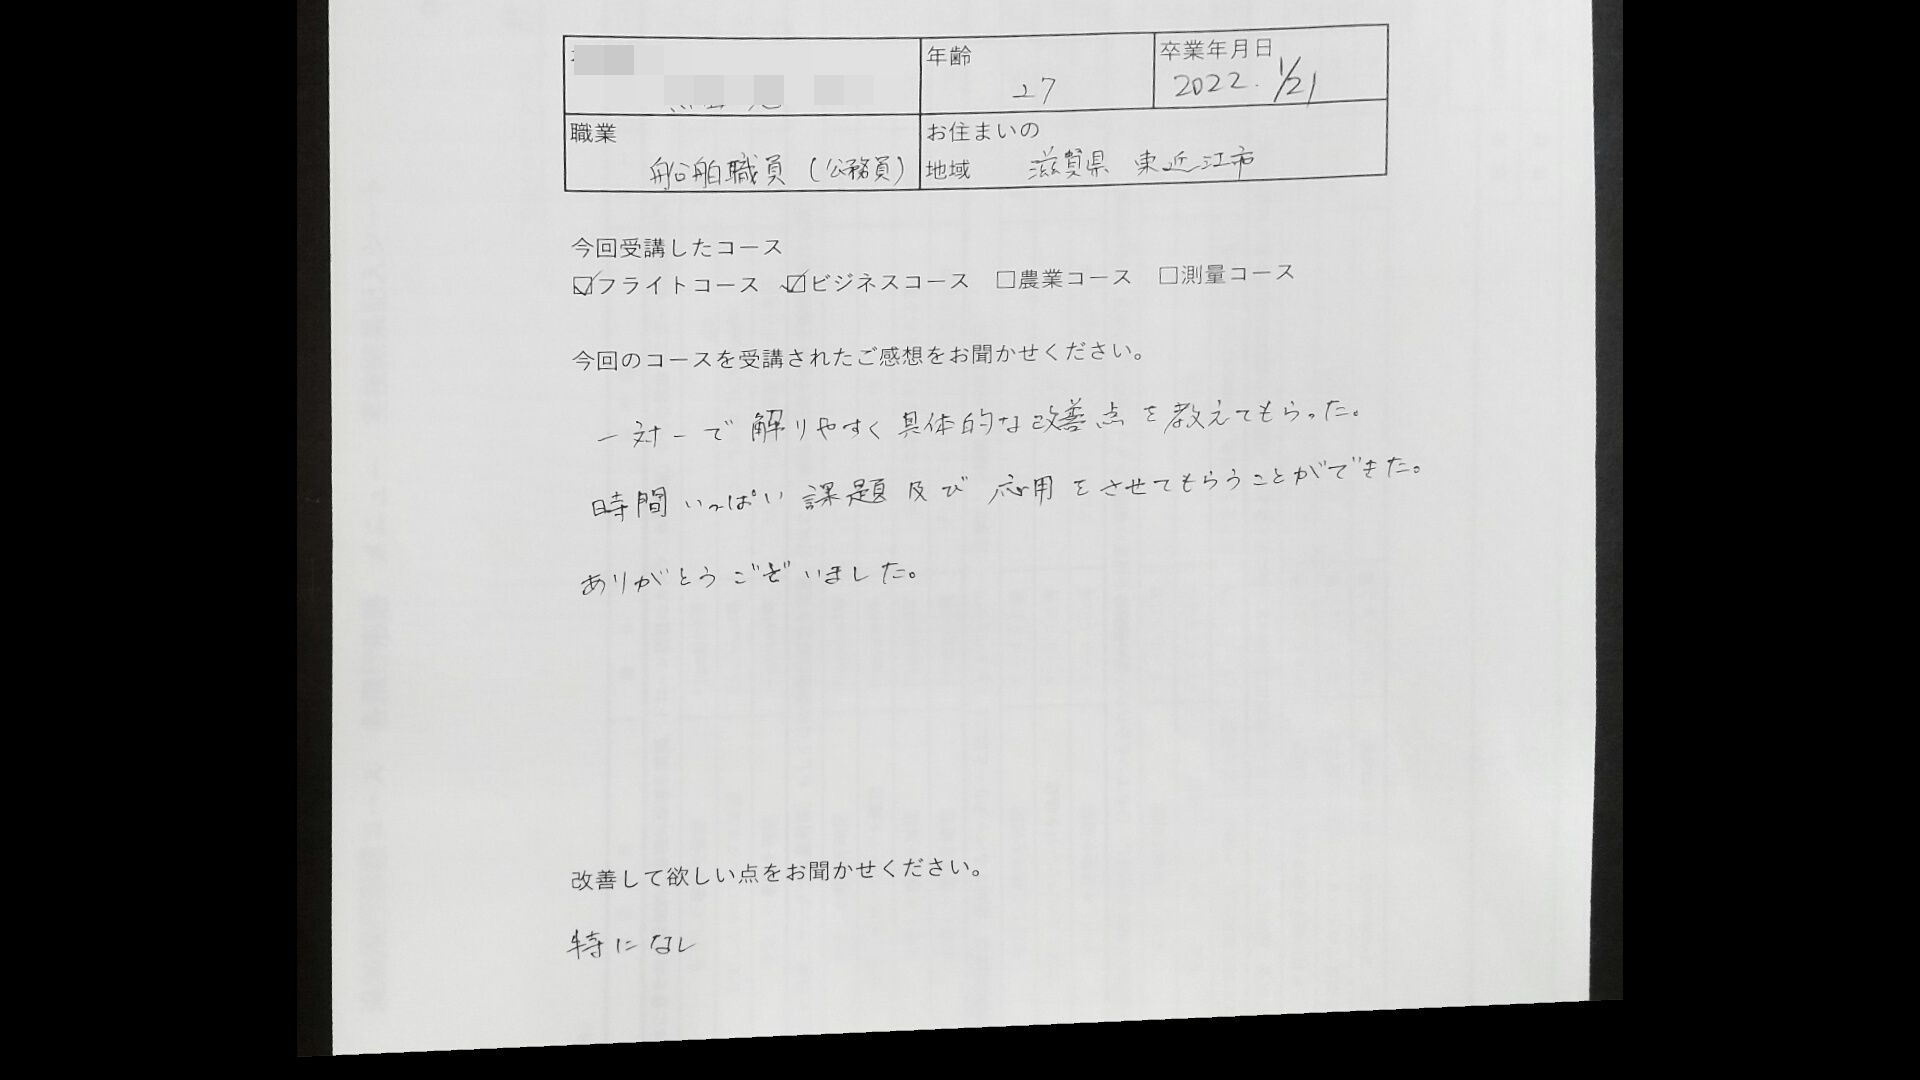 年齢 27
卒業年月日 2022. 1/21
職業 船舶職員 (公務員)
お住まいの
地域 滋賀県 東近江市
今回受講したコース
☑フライトコース ☑ビジネスコース □農業コース □測量コース
今回のコースを受講されたご感想をお聞かせください。
一対一で解りやすく具体的な改善点を教えてもらった。
時間いっぱい課題及び応用をさせてもらうことができた。
ありがとうございました。
改善して欲しい点をお聞かせください。
特になし